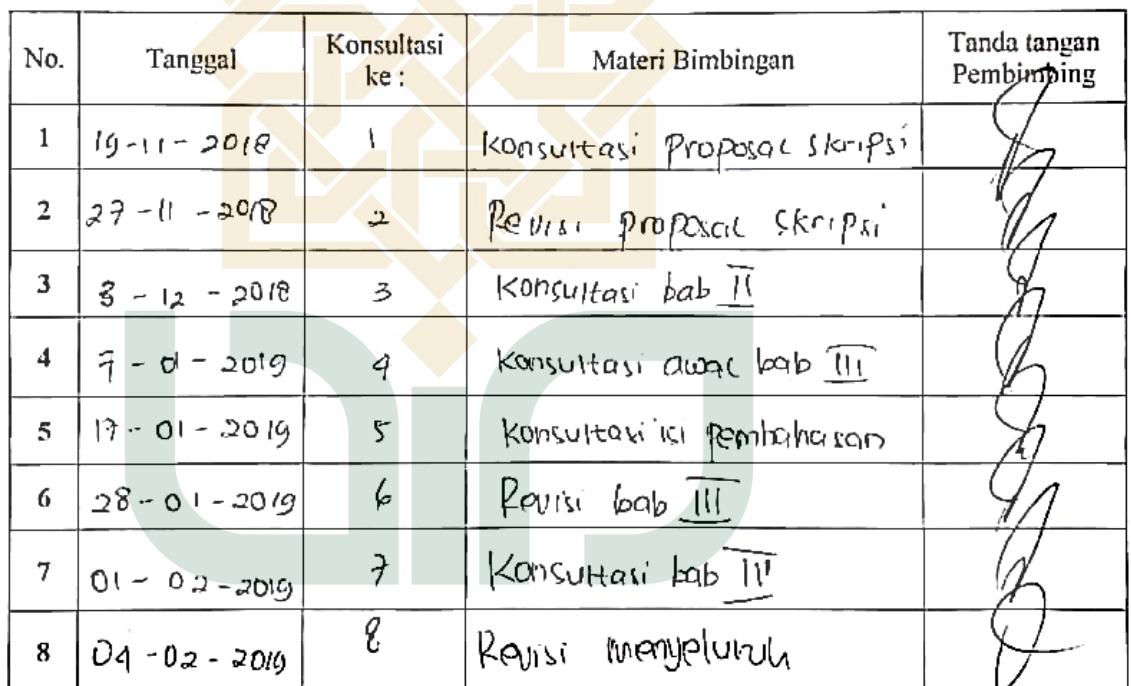 No. Tanggal Konsultasi ke : Materi Bimbingan Tanda tangan Pembimbing
1 19-11-2018 1 Konsultasi Proposal Skripsi
2 27-11-2018 2 Revisi proposal skripsi
3 3-12-2018 3 Konsultasi bab II
4 7-01-2019 4 Konsultasi awal bab III
5 17-01-2019 5 Konsultasi isi pembahasan
6 28-01-2019 6 Revisi bab III
7 01-02-2019 7 Konsultasi bab III
8 04-02-2019 8 Revisi menyeluruh